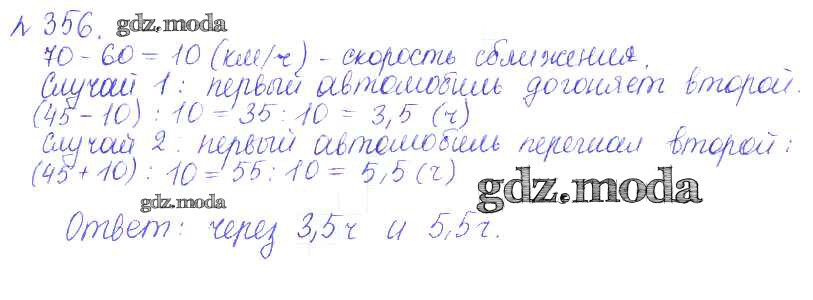 № 356. gdz.moda
70 - 60 = 10 (км/ч) - скорость сближения.
Случай 1: первый автомобиль догоняет второй.
(45 - 10) : 10 = 35 : 10 = 3,5 (ч)
Случай 2: первый автомобиль перегнал второй:
(45 + 10) : 10 = 55 : 10 = 5,5 (ч)
gdz.moda
gdz.moda
Ответ: через 3,5ч и 5,5ч.